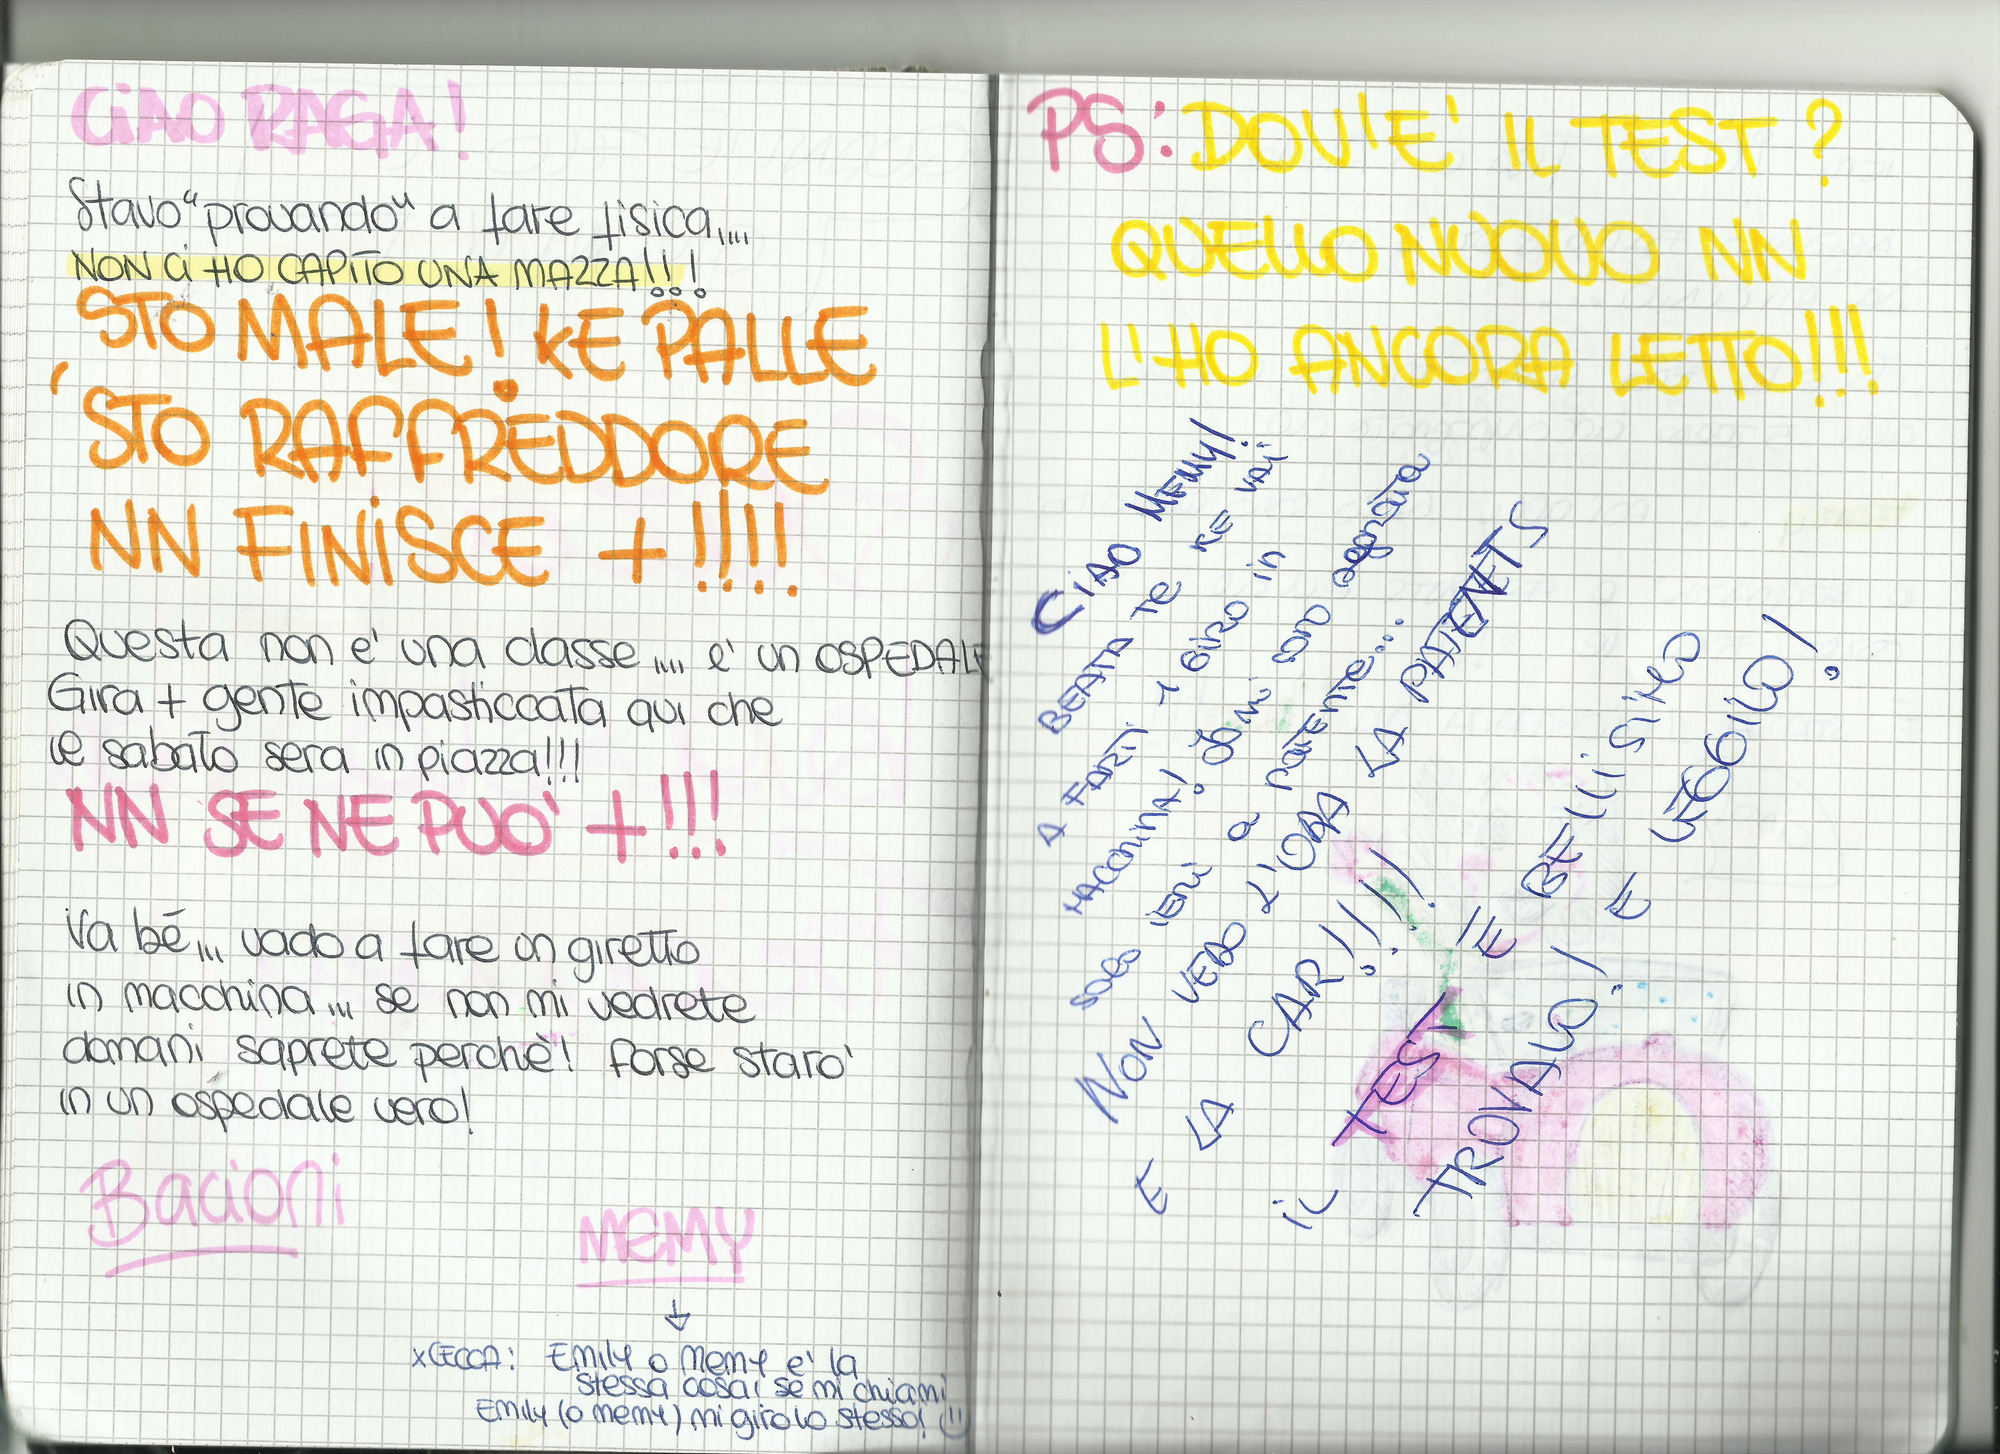 CIAO RAGA!
Stavo "provando" a fare fisica,,,,
NON CI HO CAPITO UNA MAZZA!!!
STO MALE! KE PALLE
'STO RAFFREDDORE
NN FINISCE +!!!!
Questa non e' una classe,,,, e' un OSPEDALE
Gira + gente impasticcata qui che
le sabato sera in piazza!!!
NN SE NE PUO' +!!!
Va bé,,, vado a fare un giretto
in macchina,,, se non mi vedrete
domani saprete perchè! Forse staro'
in un ospedale vero!
Bacioni
MEMY
xCECCA: Emily o Memy e' la
stessa cosa! se mi chiami
Emily (o memy) mi giro lo stesso!
PS: DOV'E' IL TEST?
QUELLO NUOVO NN
L'HO ANCORA LETTO!!!
CIAO MEMY!
BEATA TE KE VAI
A FARTI 1 GIRO in
MACCHINA! Oggi sono andata
solo ieri a patente...
NON VEDO L'ORA LA PATENETS
E LA CAR!!!!!
iL TEST È BELLISSIMO
TROVALO! E LEGGILO!